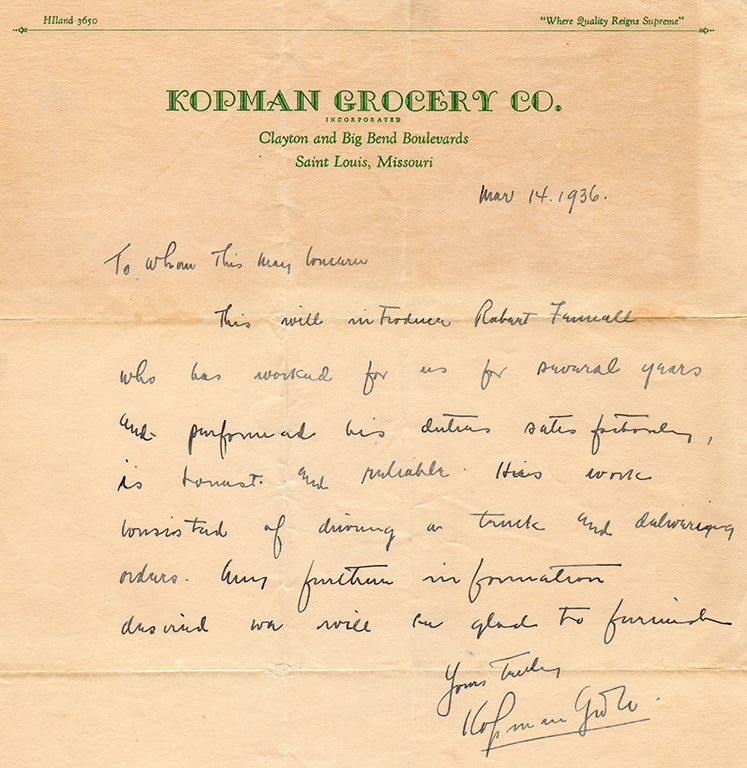 HIland 3650 "Where Quality Reigns Supreme"
KOPMAN GROCERY CO.
INCORPORATED
Clayton and Big Bend Boulevards
Saint Louis, Missouri
Mar 14. 1936.
To Whom This May Concern
This will introduce Robert
who has worked for us for several years
and performed his duties satisfactorily,
is honest and reliable. His work
consisted of driving a truck and delivering
orders. Any further information
desired we will be glad to furnish
Yours Truly
Kopman Gro Co.